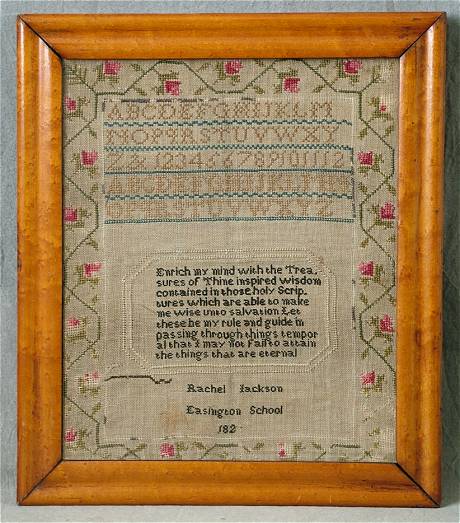 ABCDEFGHIJKLM
NOPQRSTUVWXY
Z& 123456789101112
ABCDEFGHIJKLM
OPQRSTUVWXYZ
Enrich my mind with the Trea,
sures of Thine inspired wisdom
contained in those holy Scrip,
tures which are able to make
me wise unto salvation Let
these be my rule and guide in
passing through things tempor
al that I may not fail to attain
the things that are eternal
Rachel Jackson
Easington School
182